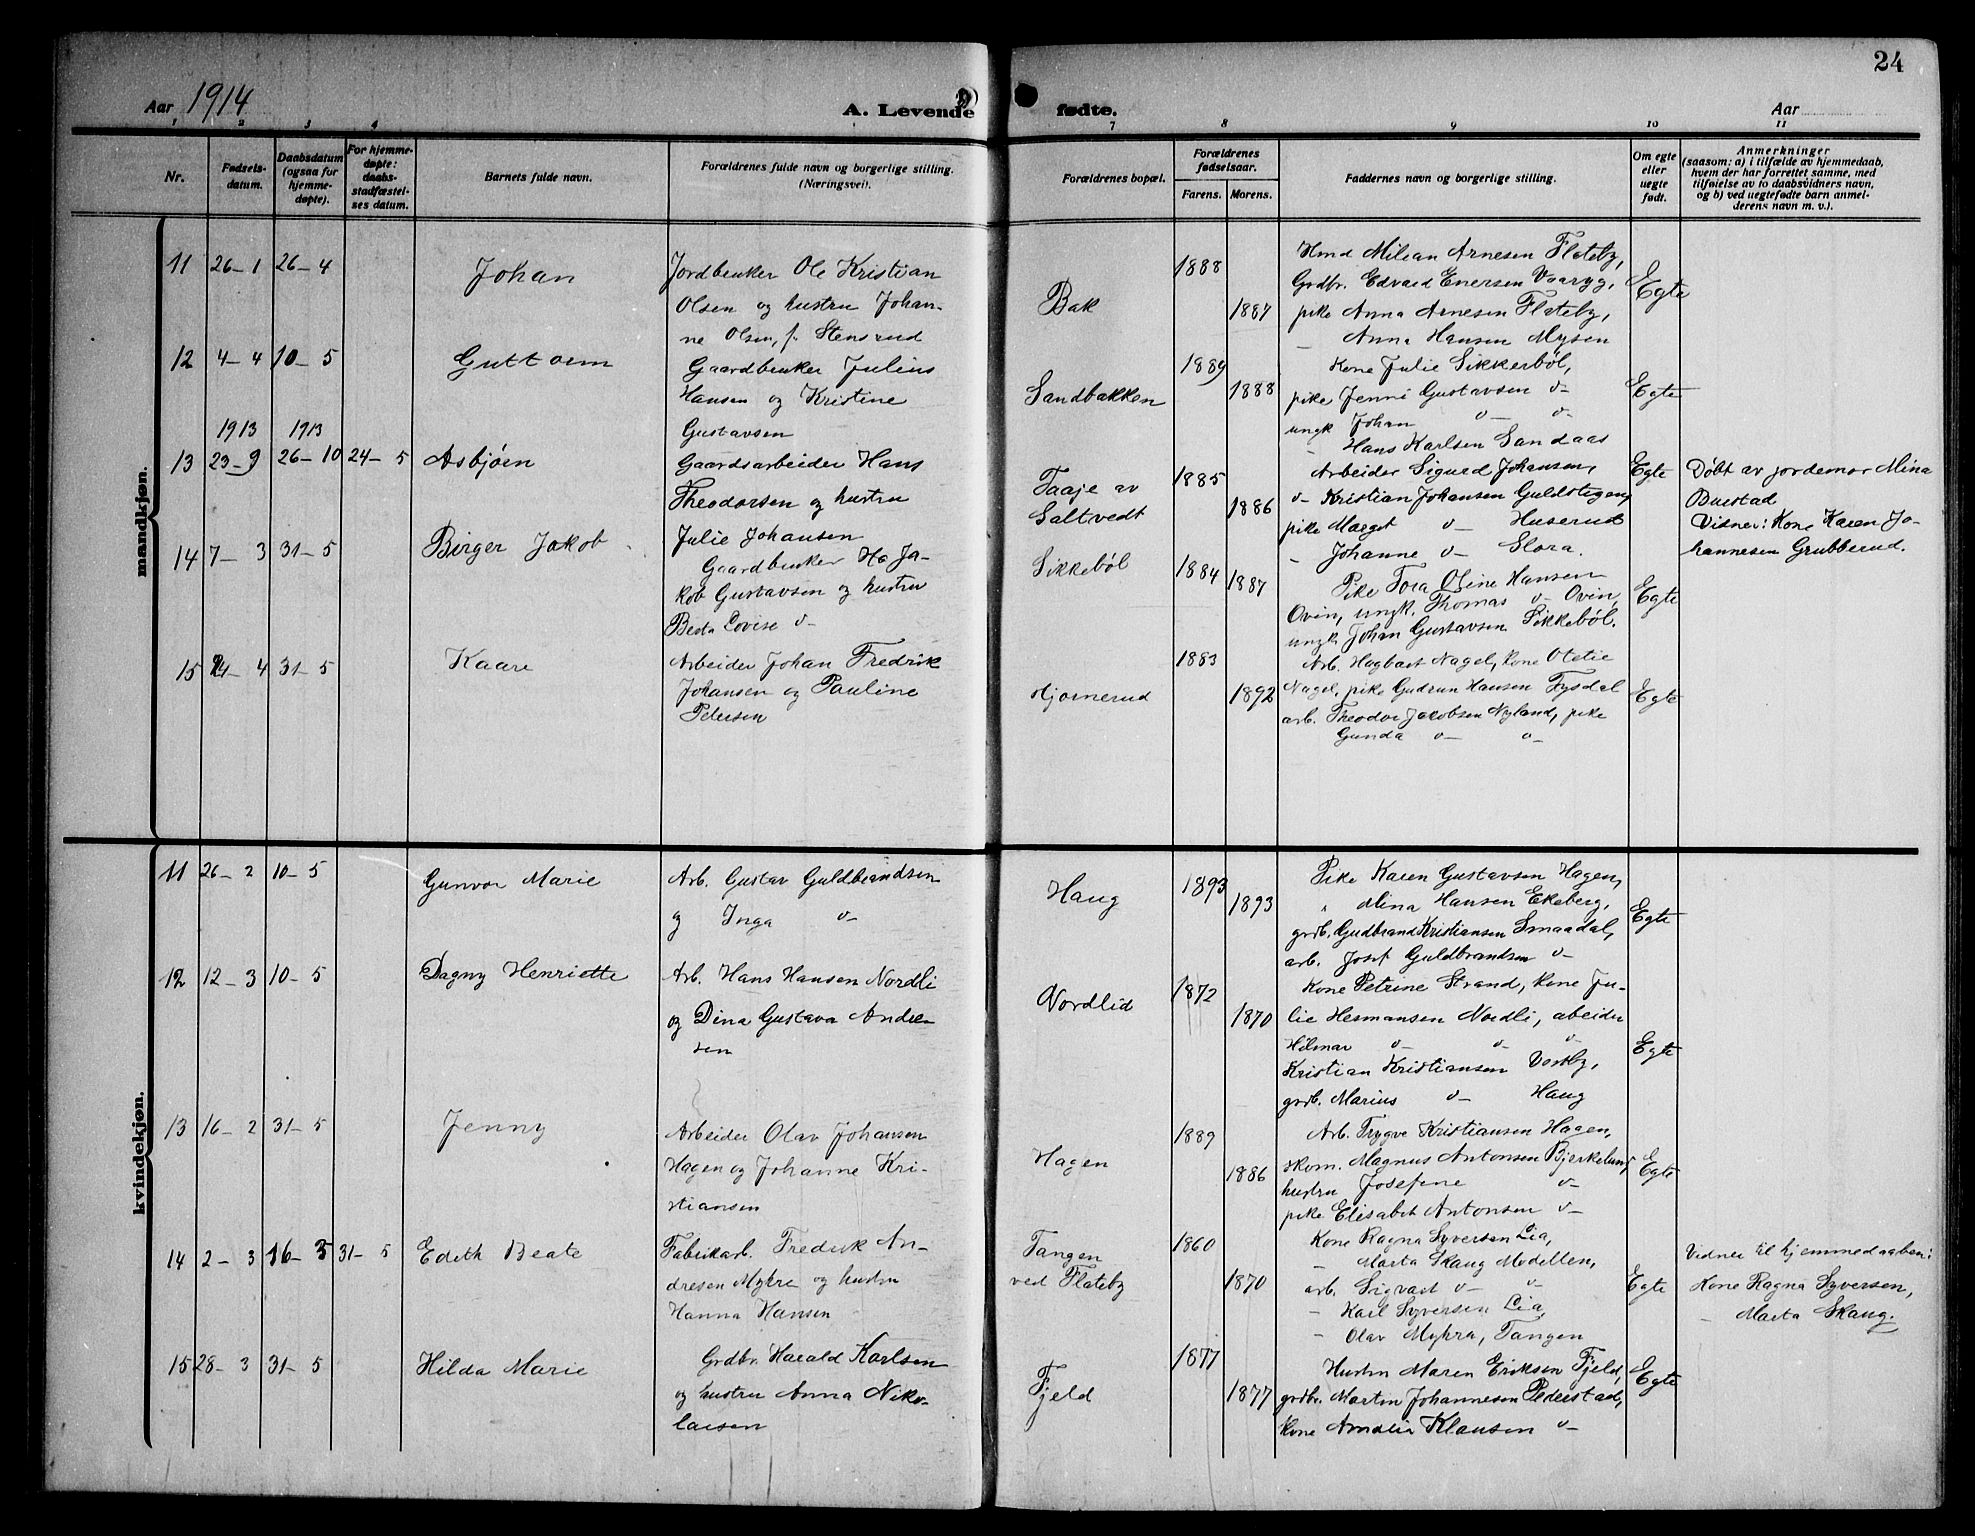 24
Aar 1914
A. Levende
fødte.
Aar
1 2 3 4
7 8 9 10 11
Nr.
Fødsels-
datum.
Daabsdatum
(ogsaa for
hjemme-
døpte).
For hjemme-
døpte:
daabs-
stadfæstel-
ses datum.
Barnets fulde navn.
Forældrenes fulde navn og borgerlige stilling.
(Næringsvei).
Forældrenes bopæl.
Forældrenes
fødselsaar.
Farens. Morens.
Faddernes navn og borgerlige stilling.
Om egte
eller
uegte
født.
Anmerkninger
(saasom: a) i tilfælde av hjemmedaab,
hvem der har forrettet samme, med
tilføielse av to daabsvidners navn,
og b) ved uegtefødte barn anmel-
derens navn m. v.).
mandkjøn.
11 26-1 26-4 Johan
Jordbruker Ole Kristian
Olsen og hustru Johan-
ne Olsen, f. Stensrud
Bak
1888
1887
Milian Arnesen Flateby,
Grdbr. Edvard Enersen Vaaryg,
pike Anna Arnesen Flateby,
- Anna Hansen Mysen
Egte
12 4-4 10-5 Guttorm
Gaardbruker Julius
Hansen og Kristine
Gustavsen
Sandbakken
1889
1888
Kone Julie Sikkerbøl,
pike Jenni Gustavsen v-
ungk Johan v- v-
- Hans Karlsen Sandaas
Egte
1913 1913
13 23-9 26-10 24-5 Asbjørn
Gaardsarbeider Hans
Theodorsen og hustru
Julie Johansen
Taaje av
Saltvedt
1885
1886
Arbeider Sigurd Johansen,
v- Kristian Johansen Guldstigen,
pike Marget v- Huserud
- Johanne v- Slora.
Egte
Døbt av jordemor Mina
Bustad
Visner: Kone Karen Jo-
hannesen Grubberud.
14 7-3 31-5 Birger Jakob
Gaardbruker Ha Ja-
kob Gustavsen og hustru
Berta Lovise v-
Sikkebøl
1884
1887
Pike Tora Oline Hansen
Ovin, ungk. Thomas v- Ovin,
ungk Johan Gustavsen Sikkebøl.
Egte
15 4 31-5 Kaare
Arbeider Johan Fredrik
Johansen og Pauline
Petersen
Hjornerud
1883
1892
Arb. Hagbart Nagel, kone Otetie
Nagel, pike Gudrun Hansen Fysdal
arb. Theodor Jakobsen Nyland, pike
Gunda v- v-
Egte
kvindekjøn.
11 26-2 10-5 Gunvor Marie
Arb. Gustav Guldbrandsen
og Inga v-
Haug
1893
1893
Pike Karen Gustavsen Hagen,
" Mina Hansen Ekeberg,
grdb. Gudbrand Kristiansen Smaadal,
arb. Josef Guldbrandsen v-
Egte
12 12-3 10-5 Dagny Henriette
Arb. Hans Hansen Nordli
og Dina Gustava Andre-
sen
Nordlid
1872
1870
Kone Petrine Strand, kone Ju-
lie Hermansen Nordli, abeider
Hilmar v- v- v-
Kristian Kristiansen Vestby,
grdb. Marius v- Haug
Egte
13 16-2 31-5 Jenny
Arbeider Olav Johansen
Hagen og Johanne Kri-
stiansen
Hagen
1889
1886
Arb. Trygve Kristiansen Hagen,
skom. Magnus Antonsen Bjerkelund
hustru Josefine v-
pike Elisabet Antonsen v-
Egte
14 2-3 16-3 31-5 Edith Beate
Fabrikarb. Fredrik An-
dresen Mykre og hustru
Hanna Hansen
Tangen
ved Flateby
1860
1870
Kone Ragna Syversen Lia,
- Marta Skaug Modellen,
arb. Sigvart v- v-
- Karl Syversen Lia,
- Olav Mykra, Tangen
Egte
Vidner til hjemmedaaben:
Kone Ragna Syversen,
- Marta Skaug.
15 28-3 31-5 Hilda Marie
Grdbr. Harald Karlsen
og hustru Anna Niko-
laisen
Fjeld
1877
1877
Hustru Maren Eriksen Fjeld,
grdbr. Martin Johannesen Pederstad,
kone Amalie Klausen v-
Egte